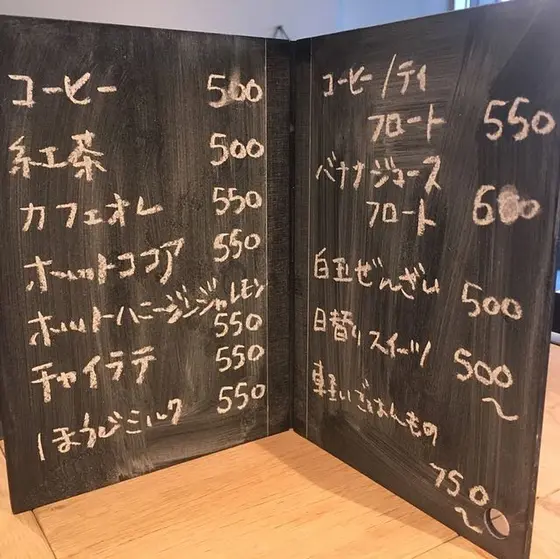 コーヒー 500
紅茶 500
カフェオレ 550
ホットココア 550
ホットハニージンジャレモン
550
チャイラテ 550
ほうじミルク 550
コーヒー/ティ
フロート 550
バナナジュース
フロート 600
白玉ぜんざい
500
日替りスイーツ
500
~
軽いごはんもの
750
~